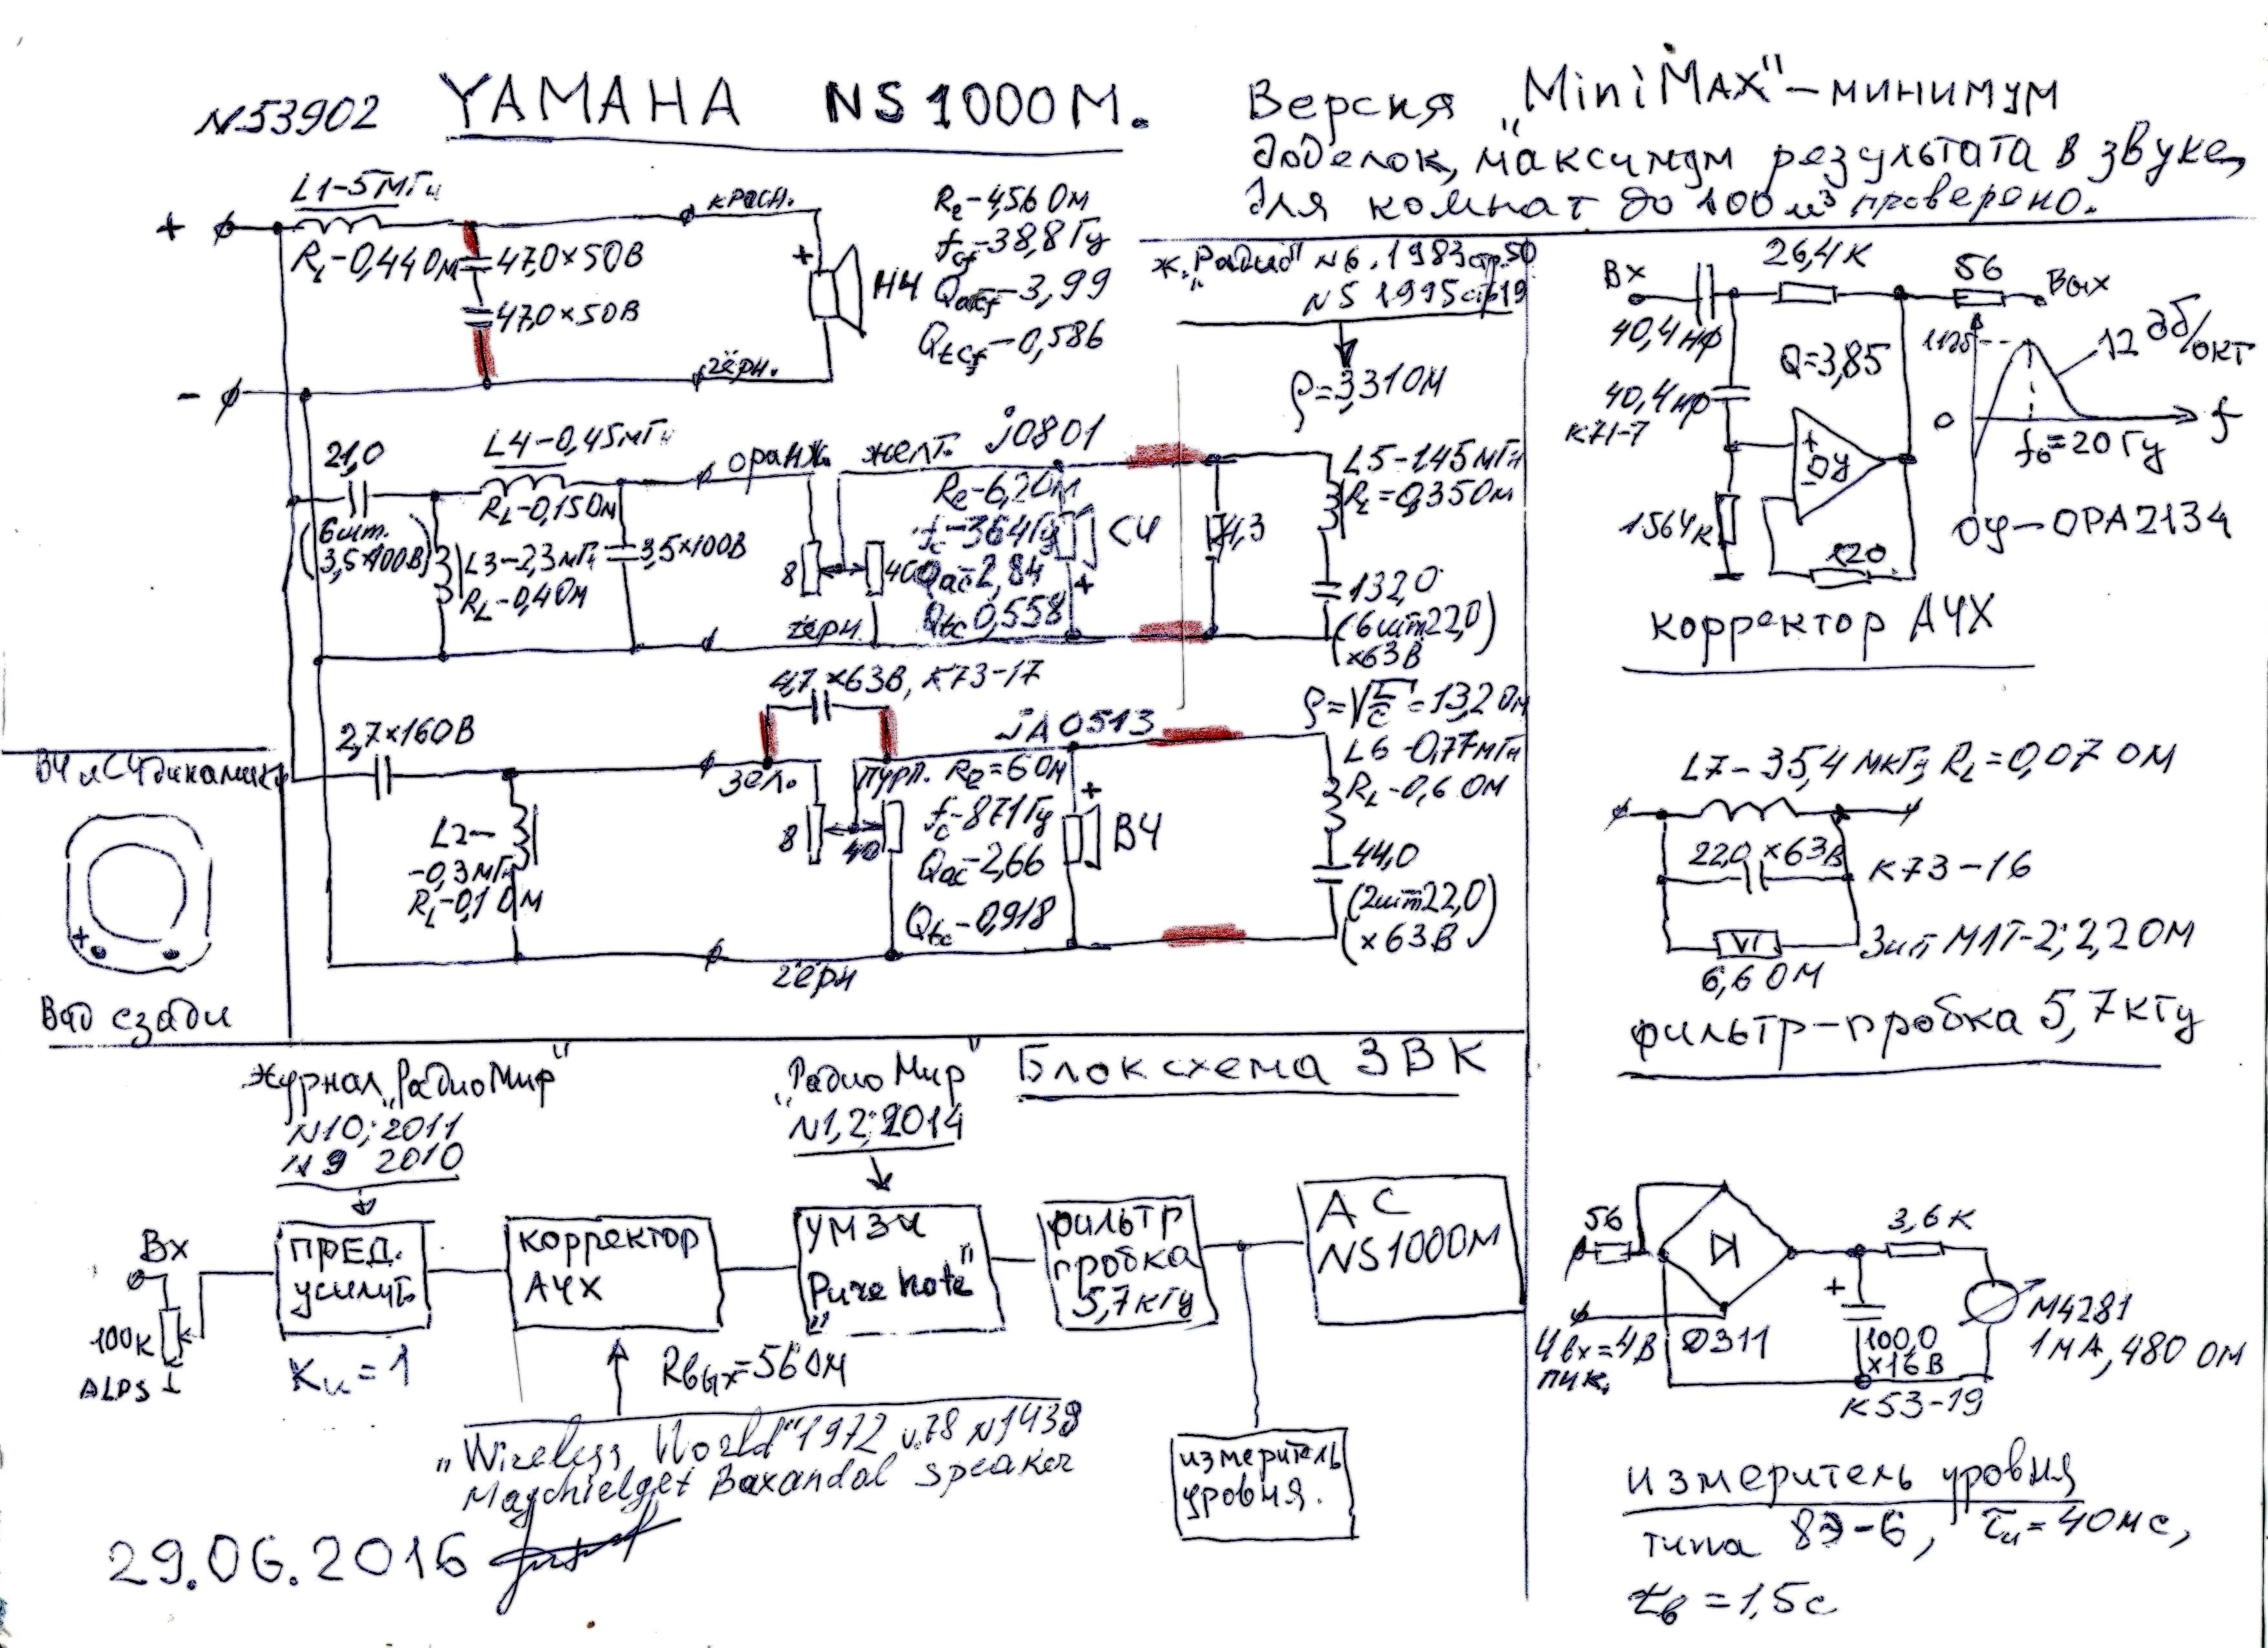 N53902 YAMAHA NS1000M.
Версия „MiniMax" – минимум
доделок, максимум результата в звуке,
для комнат до 100 м³ проверено.
L1-5мГн
RL-0,44 Ом
+
-
47,0×50В
47,0×50В
красн.
чёрн.
+
НЧ
Re-4,56 Ом
fcf-38,8 Гц
Qacf-3,99
Qtcf-0,586
ж. „Радио" N6, 1983 стр.50
N5 1995 стр19
ρ=3,31 Ом
21,0
(6шт. 3,5×100В)
L4-0,45мГн
RL-0,15 Ом
L3-2,3мГн
RL-0,4 Ом
3,5×100В
оранж.
желт.
чёрн.
8
40
j0801
Re-6,2 Ом
fc-364Гц
Qac-2,84
Qtc 0,558
СЧ
+
4,3
L5-1,45мГн
RL=0,35 Ом
132,0
(6шт 22,0)
×63В
4,7×63В, К73-17
2,7×160В
L2-
-0,3мГн
RL-0,1 Ом
зел.
пурп.
чёрн
8
40
JA0513
Re=6 Ом
fc-871Гц
Qac-2,66
Qtc-0,918
+
ВЧ
ρ=√L/C=13,2 Ом
L6-0,77мГн
RL-0,6 Ом
44,0
(2шт 22,0)
×63В
ВЧ и СЧ динамик
+
Вид сзади
Вх
26,4К
56
Вых
40,4нф
40,4нф
К71-7
Q=3,85
+
ОУ
-
1564к
120
11дб
12 дб/окт
0
f
f0=20Гц
ОУ-OPA2134
корректор АЧХ
L7-35,4мкГн RL=0,07 Ом
22,0×63В
К73-16
VI
3шт МЛТ-2; 2,2 Ом
6,6 Ом
фильтр-пробка 5,7кГц
Блок схема ЗВК
Журнал „РадиоМир"
N10; 2011
N9 2010
„РадиоМир"
N1,2; 2014
Вх
100К
ALPS
пред. усилит.
Ku=1
корректор АЧХ
Rвых=56 Ом
УМЗЧ
„Pure Note"
фильтр
пробка
5,7кГц
АС
NS1000М
измеритель
уровня.
„Wireless World" 1972 v.78 N1438
Baxandal speaker
29.06.2016
56
Uвх=4В
пик.
Д311
3,6К
+
100,0
×16В
К53-19
М4281
1мА, 480 Ом
измеритель уровня
типа 8Э-6, τи=40мс,
tв=1,5с